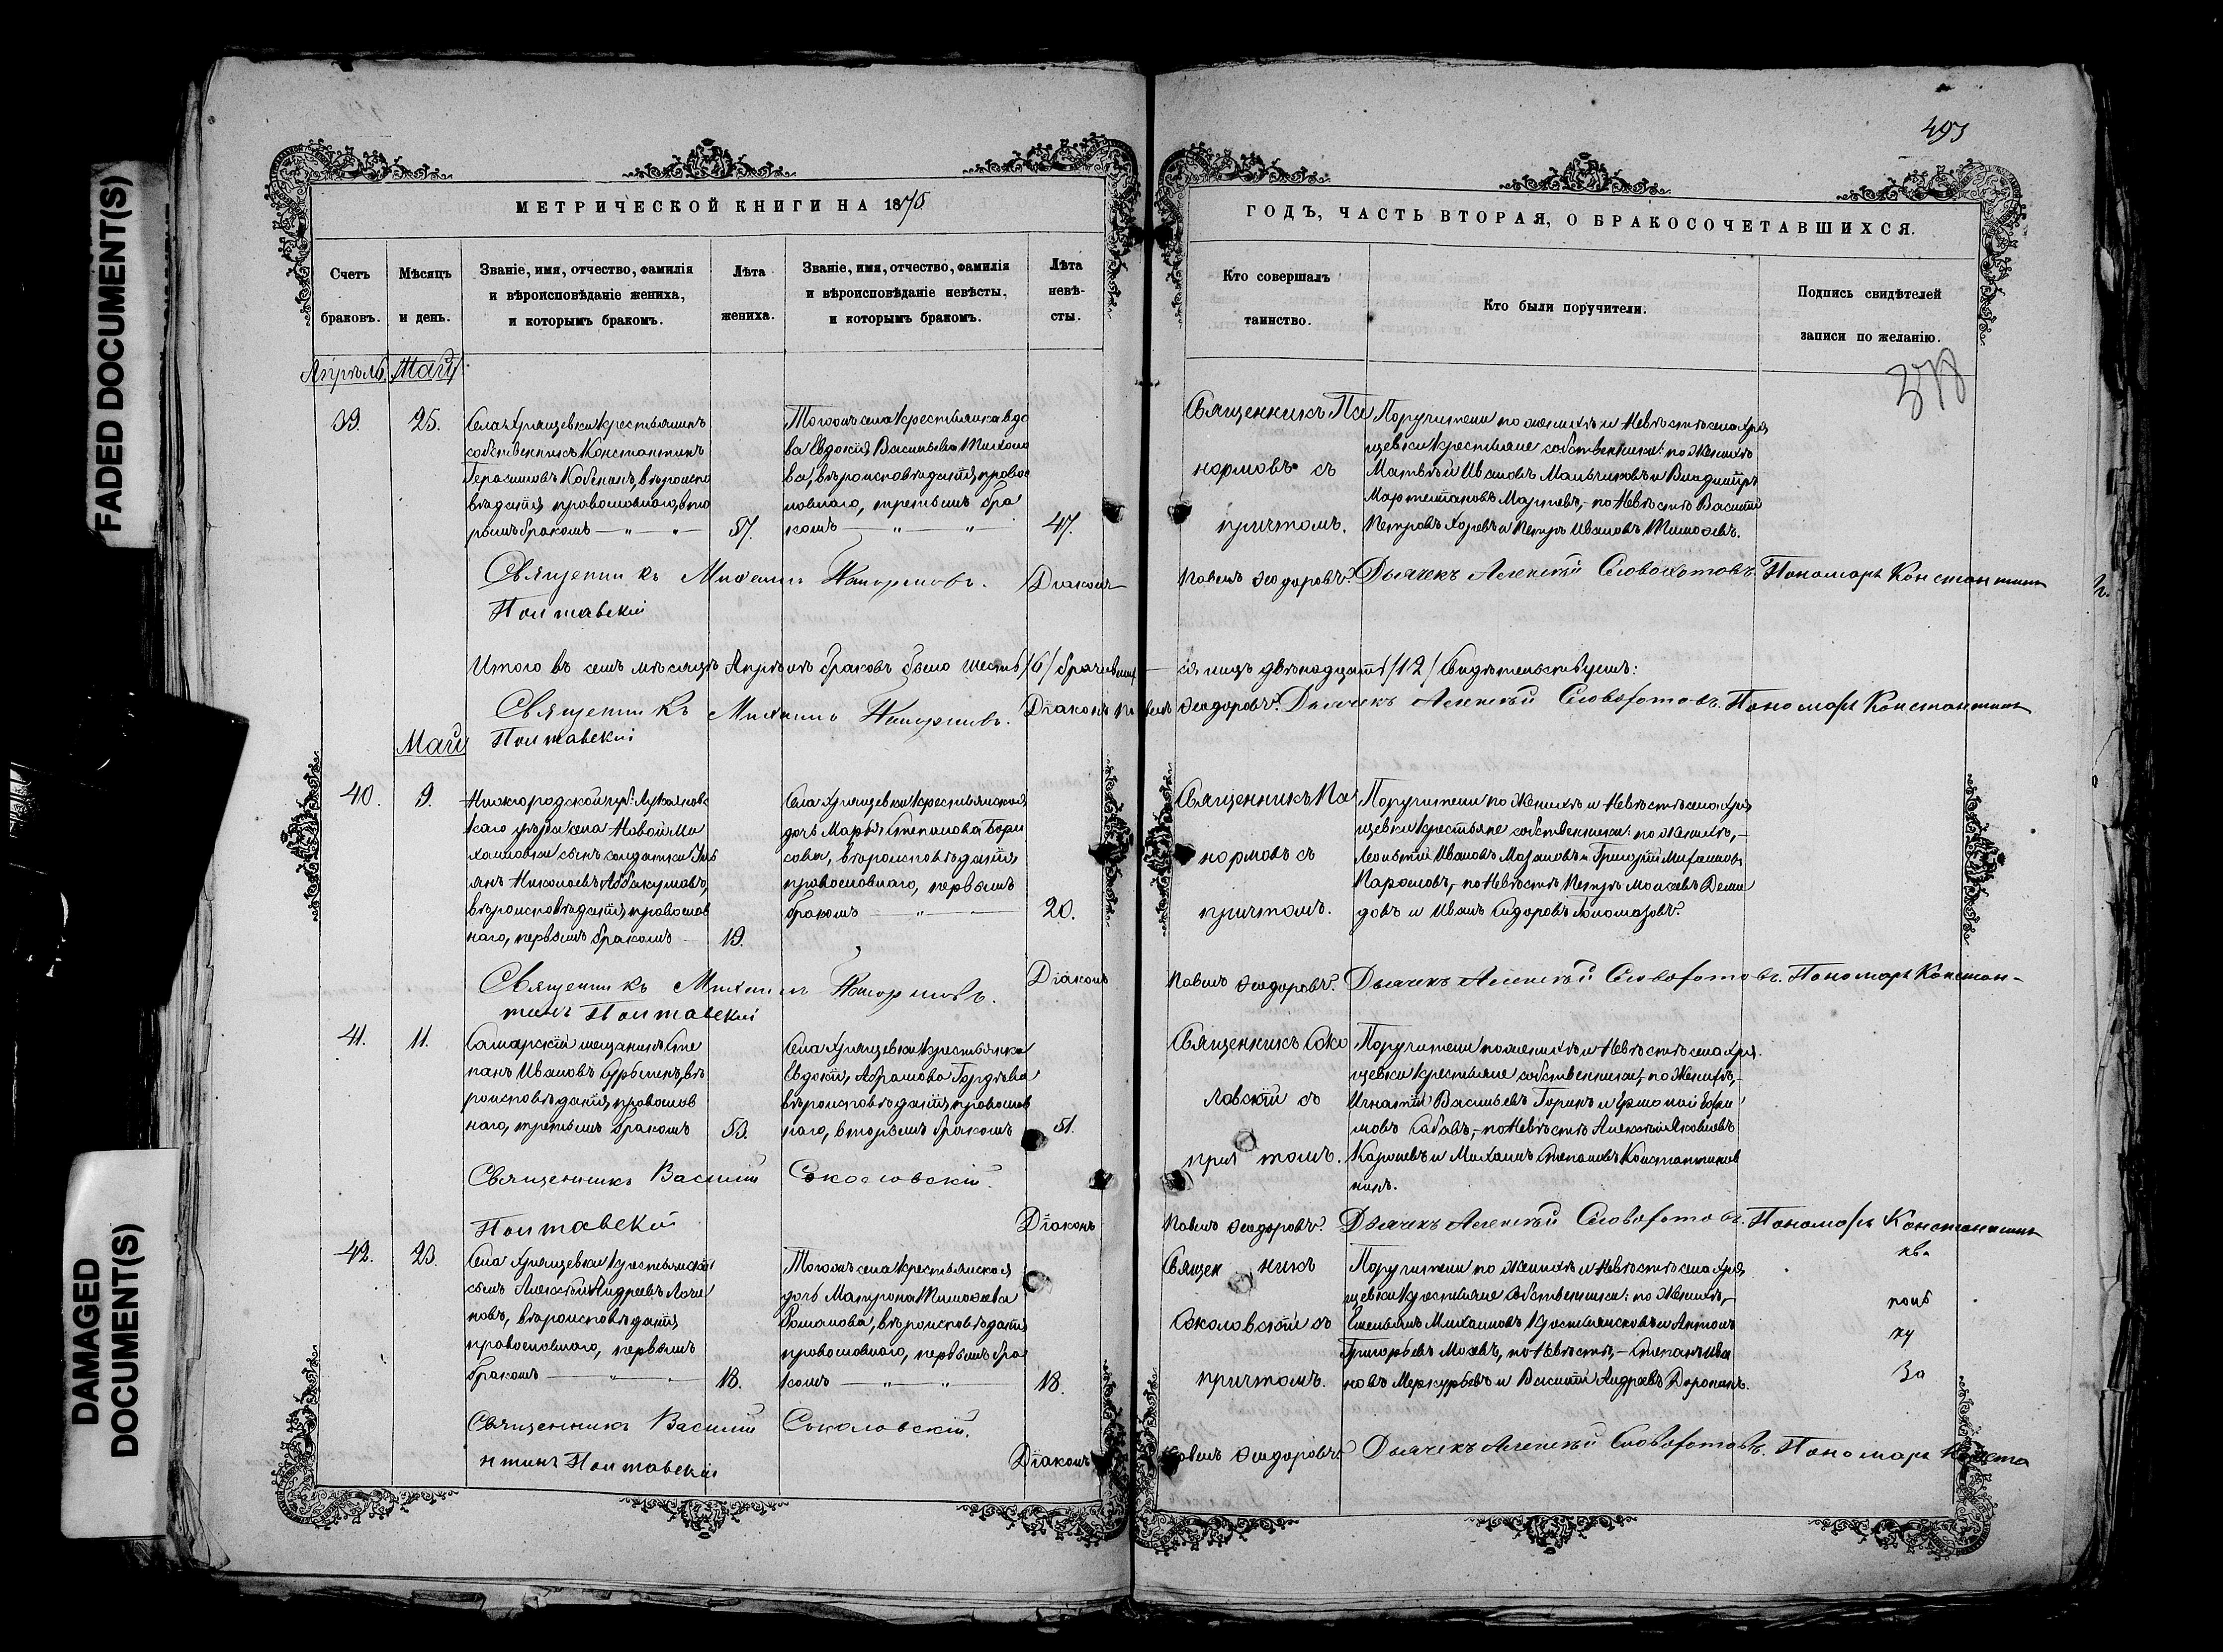 FADED DOCUMENT(S)
DAMAGED
DOCUMENT(S)
493
378
МЕТРИЧЕСКОЙ КНИГИ НА 1875
Счетъ
браковъ.
Мѣсяцъ
и день.
Званіе, имя, отчество, фамилія
и вѣроисповѣданіе жениха,
и которымъ бракомъ.
Лѣта
жениха.
Званіе, имя, отчество, фамилія
и вѣроисповѣданіе невѣсты,
и которымъ бракомъ.
Лѣта
невѣ-
сты.
ГОДЪ, ЧАСТЬ ВТОРАЯ, О БРАКОСОЧЕТАВШИХСЯ.
Кто совершалъ
таинство.
Кто были поручители.
Подпись свидѣтелей
записи по желанію.
Апрѣль Май
39.
25.
Села Хрящевки крестьянинъ
собственникъ Константинъ
Герасимовъ вѣроиспо
вѣданія православнаго, вто
рымъ бракомъ — „ — „ —
57.
Тогожъ села крестьянка вдо
ва Евдокія Васильева Тимоѳе
ва, вѣроисповѣданія правос
лавнаго, третьимъ бра
комъ — „ „
47.
Священникъ Па
нормовъ съ
причтомъ.
Поручители по женихѣ и невѣстѣ села Хря
щевки крестьяне собственники: по женихѣ
Матвѣй Ивановъ Мальчиковъ и Владиміръ
Мартемьяновъ по невѣстѣ Василій
Петровъ и Петръ Ивановъ Тимоѳеевъ.
Священникъ Михаилъ Панормовъ. Діаконъ Павелъ Ѳеодоровъ. Дьячекъ Алексѣй Словохотовъ. Пономарь Константинъ
Полтавскій
Итого въ семъ мѣсяцѣ Апрѣлѣ браковъ было шесть /6/ брачивших
ся лицъ двѣнадцать /12/ Свидѣтельствуемъ:
Священникъ Михаилъ Панормовъ. Діаконъ Павелъ Ѳеодоровъ. Дьячекъ Алексѣй Словохотовъ. Пономарь Константинъ
Полтавскій
Май
40.
9.
Нижегородской губ: Лукоянов
скаго уѣзда села Новой Ми
хайловки сынъ солдатки
Николаевъ Аввакумовъ,
вѣроисповѣданія православ
наго, первымъ бракомъ —
19.
Села Хрящевки крестьянская
дочь Марья Степанова Бори
сова, вѣроисповѣданія
православнаго, первымъ
бракомъ — „ —
20.
Священникъ Па
нормовъ съ
причтомъ.
Поручители по женихѣ и невѣстѣ села Хря
щевки крестьяне собственники: по женихѣ, —
Леонтій Ивановъ и Григорій Михайловъ
по невѣстѣ Петръ Моисеевъ Деми
довъ и Иванъ Сидоровъ
Священникъ Михаилъ Панормовъ. Діаконъ Павелъ Ѳеодоровъ. Дьячекъ Алексѣй Словохотовъ. Пономарь Констан-
тинъ Полтавскій
41.
11.
Самарскій мещанинъ Сте
панъ Ивановъ вѣ
роисповѣданія православ
наго, третьимъ бракомъ
53.
Села Хрящевки крестьянка
Евдокія Абрамова Гордѣева
вѣроисповѣданія православ
наго, вторымъ бракомъ
51.
Священникъ Соко
ловскій съ
причтомъ.
Поручители по женихѣ и невѣстѣ села Хря
щевки крестьяне собственники, по женихѣ, —
Игнатій Васильевъ Горинъ и Ермолай Ефи
мовъ по невѣстѣ Алексѣй Яковлевъ
и Михаилъ Степановъ
Священникъ Василій Соколовскій.
Діаконъ Павелъ Ѳеодоровъ. Дьячекъ Алексѣй Словохотовъ. Пономарь Константинъ
Полтавскій
42.
23.
Села Хрящевки крестьянскій
сынъ Алексѣй Андреевъ Логи
новъ, вѣроисповѣданія
православнаго, первымъ
бракомъ — „ — „ —
18.
Тогожъ села крестьянская
дочь Матрона Тимоѳеева
Романова, вѣроисповѣданія
православнаго, первымъ бра
комъ — „ — „
18.
Священникъ
Соколовскій съ
причтомъ.
Поручители по женихѣ и невѣстѣ села Хря
щевки крестьяне собственники: по женихѣ, —
Емельянъ Михайловъ и Антонъ
Григорьевъ по невѣстѣ, — Степанъ Ива
новъ Меркурьевъ и Василій Андреевъ
Священникъ Василій Соколовскій.
Діаконъ Павелъ Ѳеодоровъ. Дьячекъ Алексѣй Словохотовъ. Пономарь Конста
нтинъ Полтавскій